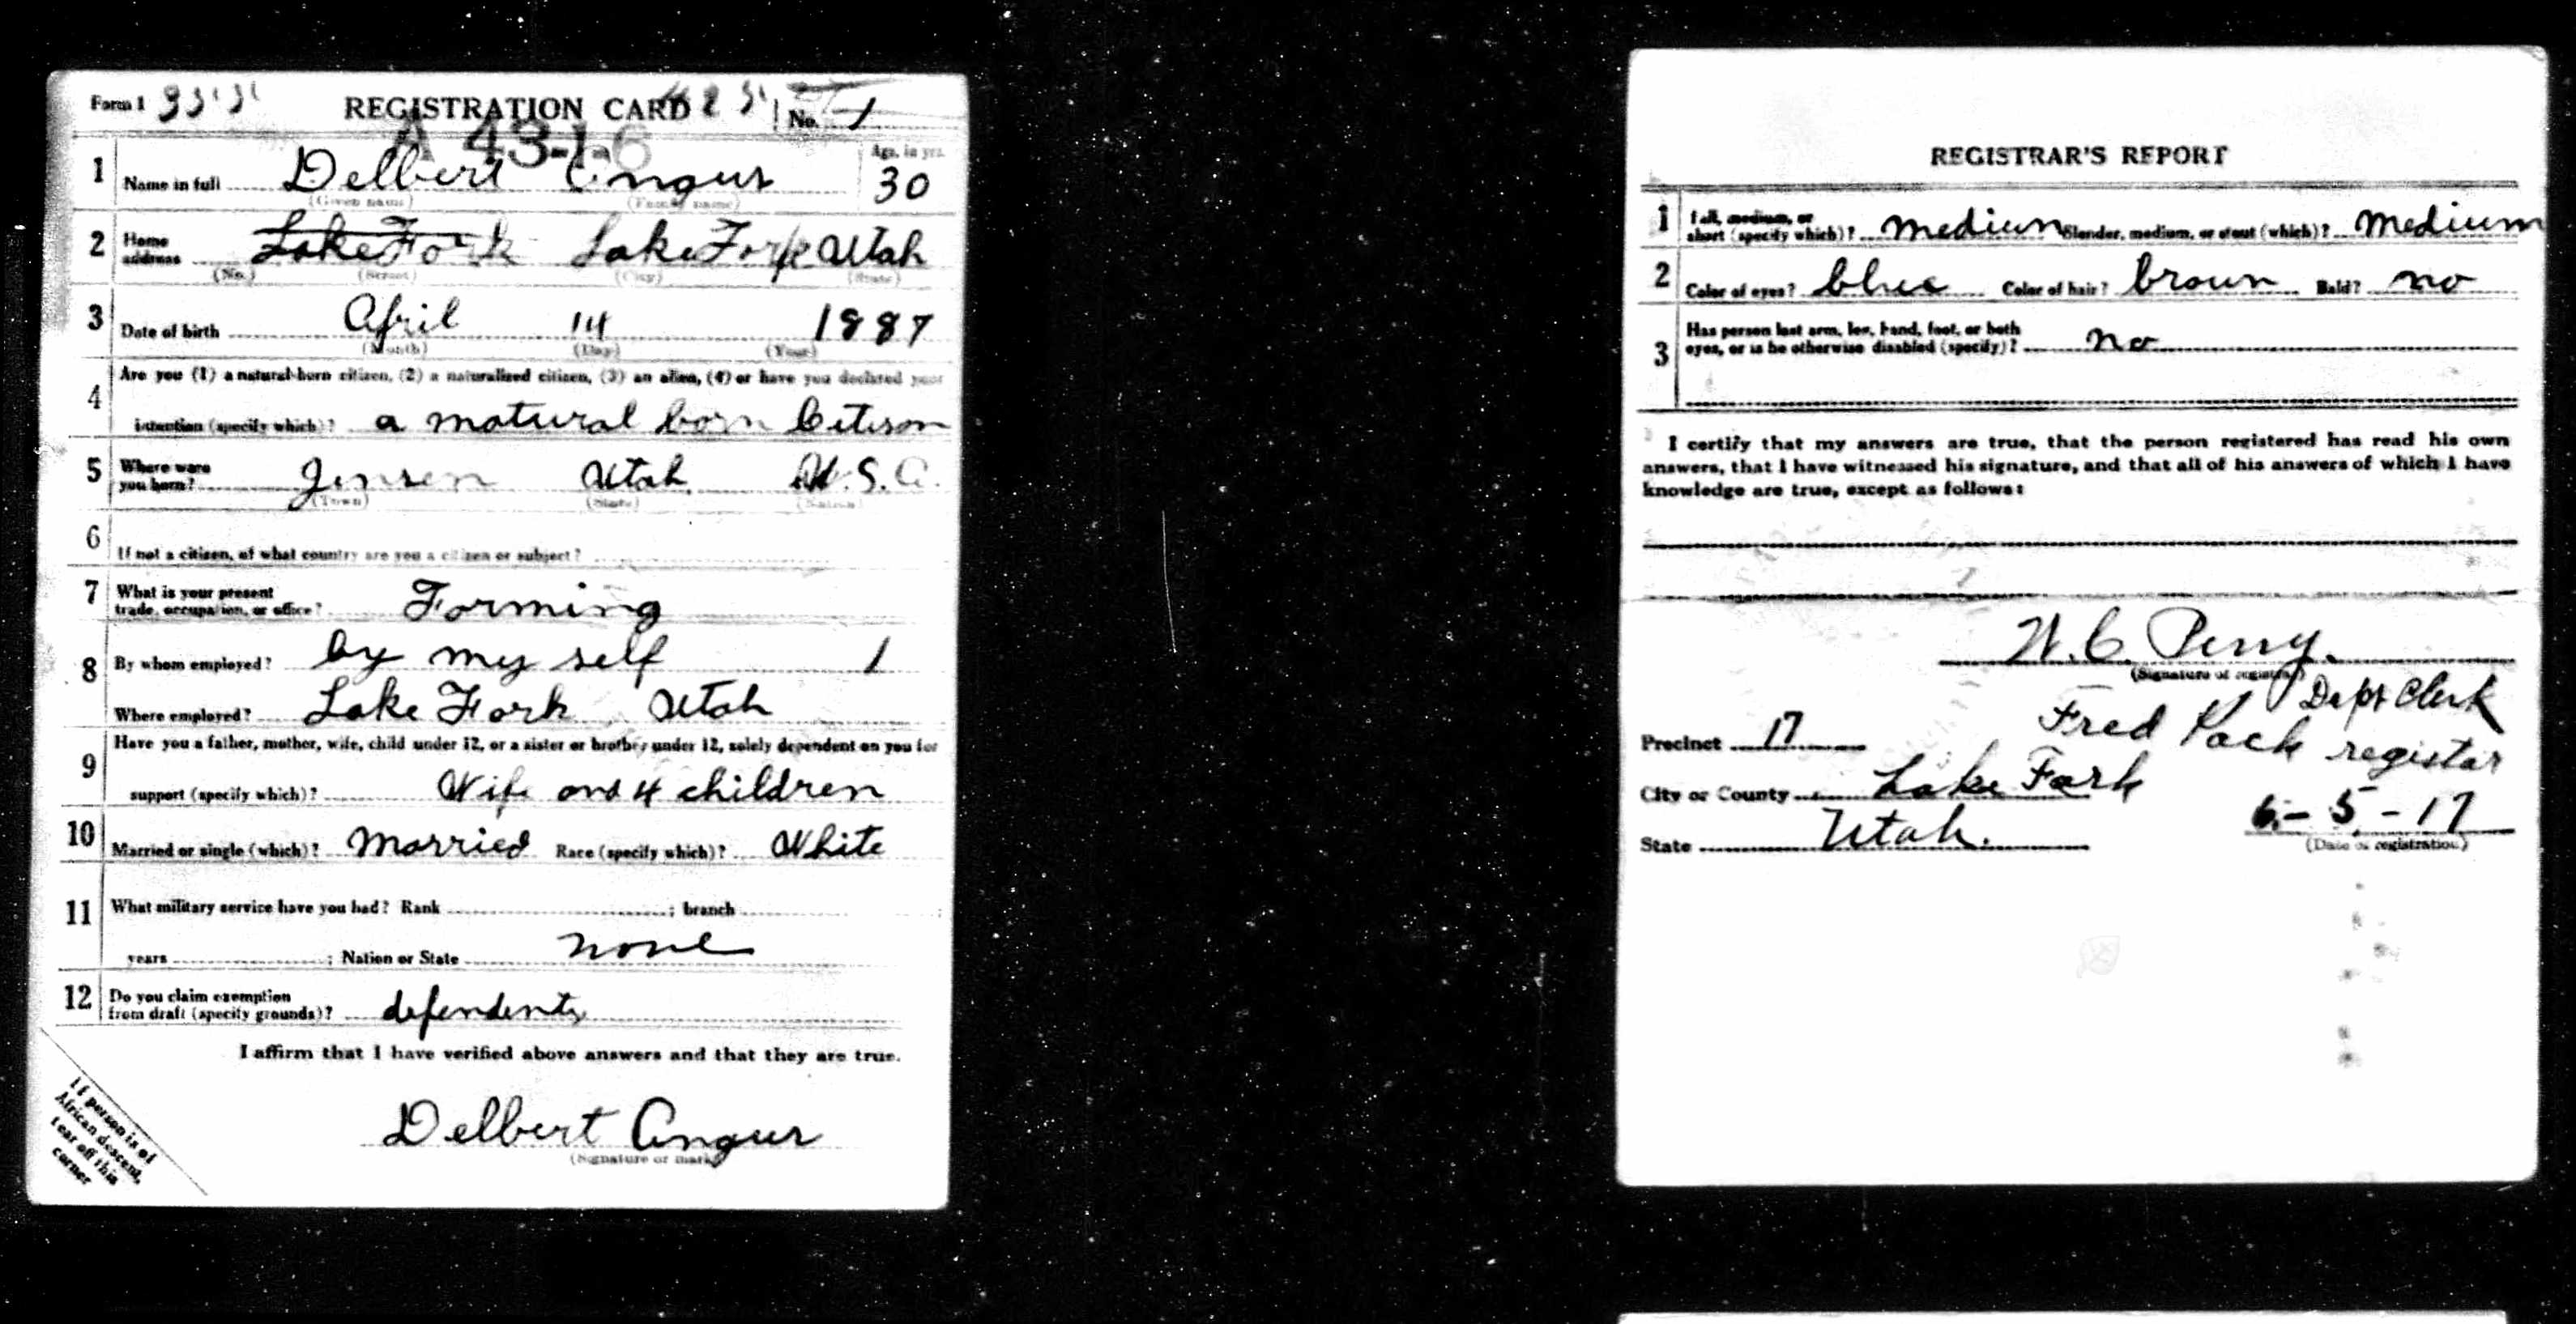 Form 1 REGISTRATION CARD No. 1
1 Name in full Delbert Angus Age, in yrs. 30
(Given name) (Family name)
2 Home address Lake Fork Lake Fork Utah
(No.) (Street) (City) (State)
3 Date of birth April 14 1887
(Month) (Day) (Year)
4 Are you (1) a natural-born citizen, (2) a naturalized citizen, (3) an alien, (4) or have you declared your
intention (specify which)? a natural born Citison
5 Where were you born? Jensen Utah U.S.A.
(Town) (State) (Nation)
6 If not a citizen, of what country are you a citizen or subject?
7 What is your present
trade, occupation, or office? Farming
8 By whom employed? by my self 1
Where employed? Lake Fork Utah
9 Have you a father, mother, wife, child under 12, or a sister or brother under 12, solely dependent on you for
support (specify which)? Wife and 4 children
10 Married or single (which)? Married Race (specify which)? White
11 What military service have you had? Rank ; branch
years ; Nation or State none
12 Do you claim exemption
from draft (specify grounds)? dependents
I affirm that I have verified above answers and that they are true.
Delbert Angus
(Signature or mark)
If person is of
African descent,
tear off this
corner
REGISTRAR'S REPORT
1 Tall, medium, or
short (specify which)? medium Slender, medium, or stout (which)? Medium
2 Color of eyes? blue Color of hair? brown Bald? no
3 Has person lost arm, leg, hand, foot, or both
eyes, or is he otherwise disabled (specify)? no
I certify that my answers are true, that the person registered has read his own
answers, that I have witnessed his signature, and that all of his answers of which I have
knowledge are true, except as follows:
W. C. Perry.
(Signature of registrar)
Dept Clerk
Fred registar
Precinct 17
City or County Lake Fork
State Utah.
6-5-17
(Date of registration)